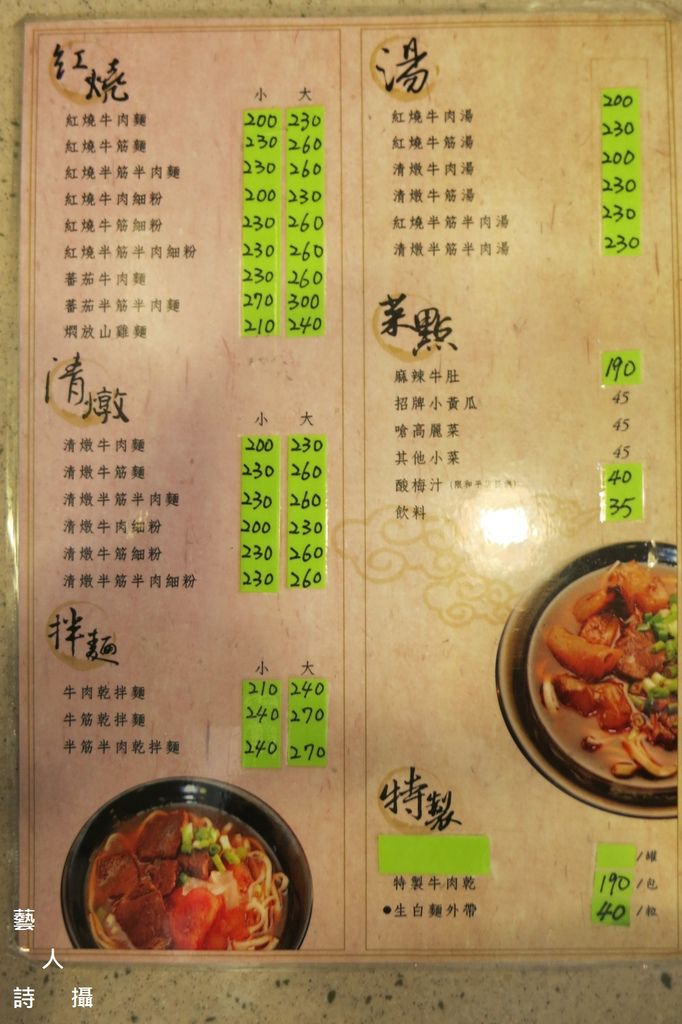 紅燒
小 大
紅燒牛肉麵 200 230
紅燒牛筋麵 230 260
紅燒半筋半肉麵 230 260
紅燒牛肉細粉 200 230
紅燒牛筋細粉 230 260
紅燒半筋半肉細粉 230 260
蕃茄牛肉麵 230 260
蕃茄半筋半肉麵 270 300
燜放山雞麵 210 240
清燉
小 大
清燉牛肉麵 200 230
清燉牛筋麵 230 260
清燉半筋半肉麵 230 260
清燉牛肉細粉 200 230
清燉牛筋細粉 230 260
清燉半筋半肉細粉 230 260
拌麵
小 大
牛肉乾拌麵 210 240
牛筋乾拌麵 240 270
半筋半肉乾拌麵 240 270
湯
紅燒牛肉湯 200
紅燒牛筋湯 230
清燉牛肉湯 200
清燉牛筋湯 230
紅燒半筋半肉湯 230
清燉半筋半肉湯 230
菜點
麻辣牛肚 190
招牌小黃瓜 45
嗆高麗菜 45
其他小菜 45
酸梅汁 40
飲料 35
特製
/罐
特製牛肉乾 190 /包
●生白麵外帶 40 /粒
藝
人
詩 攝